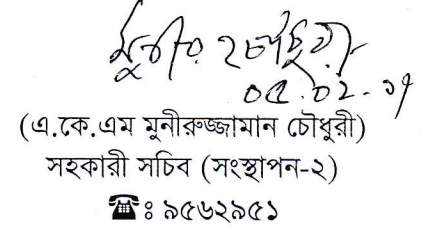 মুনীর চৌধুরী
০৫.০২.১৭
(এ.কে.এম মুনীরুজ্জামান চৌধুরী)
সহকারী সচিব (সংস্থাপন-২)
☎ঃ ৯৫৬২৯৫১